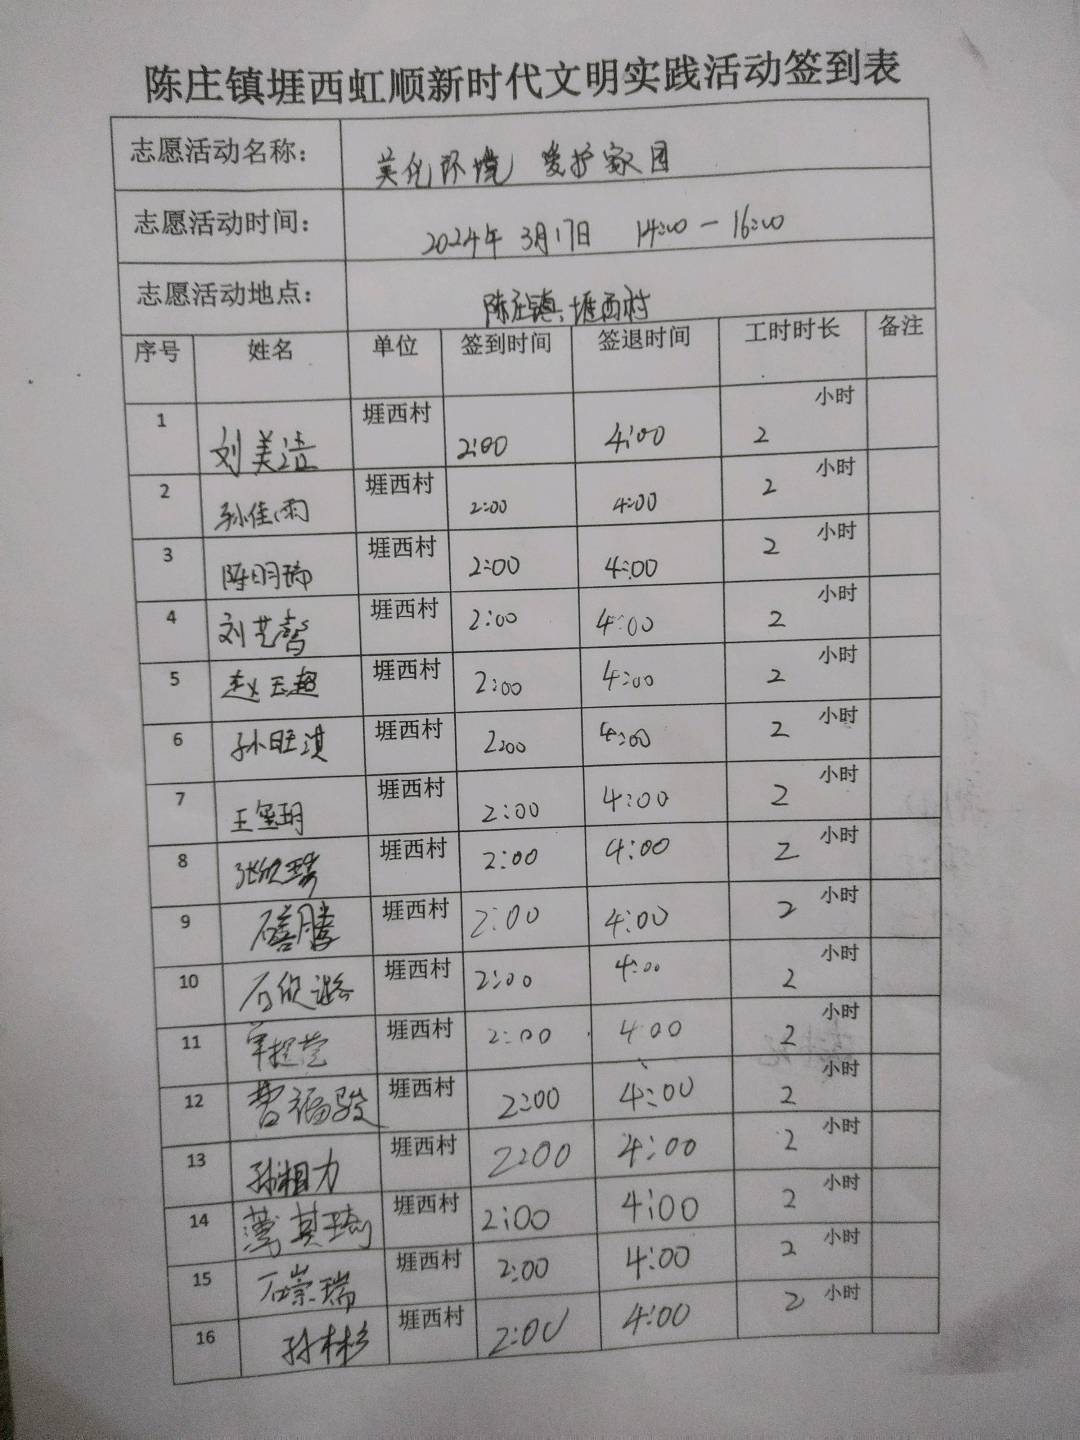 陈庄镇堐西虹顺新时代文明实践活动签到表
志愿活动名称： 美化环境 爱护家园
志愿活动时间： 2024年3月17日 14:00-16:00
志愿活动地点： 陈庄镇堐西村
序号 姓名 单位 签到时间 签退时间 工时时长 备注
1 刘美洁 堐西村 2:00 4:00 2 小时
2 孙佳雨 堐西村 2:00 4:00 2 小时
3 陈明瑞 堐西村 2:00 4:00 2 小时
4 刘艺馨 堐西村 2:00 4:00 2 小时
5 赵玉超 堐西村 2:00 4:00 2 小时
6 孙旺淇 堐西村 2:00 4:00 2 小时
7 堐西村 2:00 4:00 2 小时
8 张欣琦 堐西村 2:00 4:00 2 小时
9 堐西村 2:00 4:00 2 小时
10 石欣潞 堐西村 2:00 4:00 2 小时
11 堐西村 2:00 4:00 2 小时
12 曹福骏 堐西村 2:00 4:00 2 小时
13 孙相力 堐西村 2:00 4:00 2 小时
14 堐西村 2:00 4:00 2 小时
15 石崇瑞 堐西村 2:00 4:00 2 小时
16 孙彬杉 堐西村 2:00 4:00 2 小时